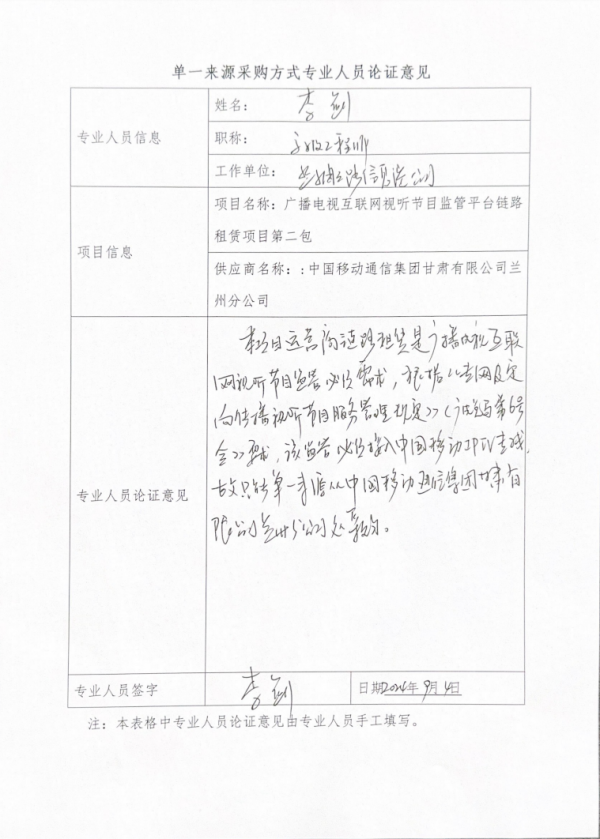 单一来源采购方式专业人员论证意见
专业人员信息
姓名：李剑
职称：工程师
工作单位：公司
项目信息
项目名称：广播电视互联网视听节目监管平台链路
租赁项目第二包
供应商名称：:中国移动通信集团甘肃有限公司兰
州分公司
专业人员论证意见
本项目运营商链路租赁是广播电视互联
网视听节目监管必须需求，根据《专网及定
向传播视听节目服务管理规定》（第6号
令）要求，该监管必须接入中国移动IPTV专线，
故只能单一来源从中国移动通信集团甘肃有
限公司兰州分公司处
专业人员签字
李剑
日期2024年9月4日
注：本表格中专业人员论证意见由专业人员手工填写。